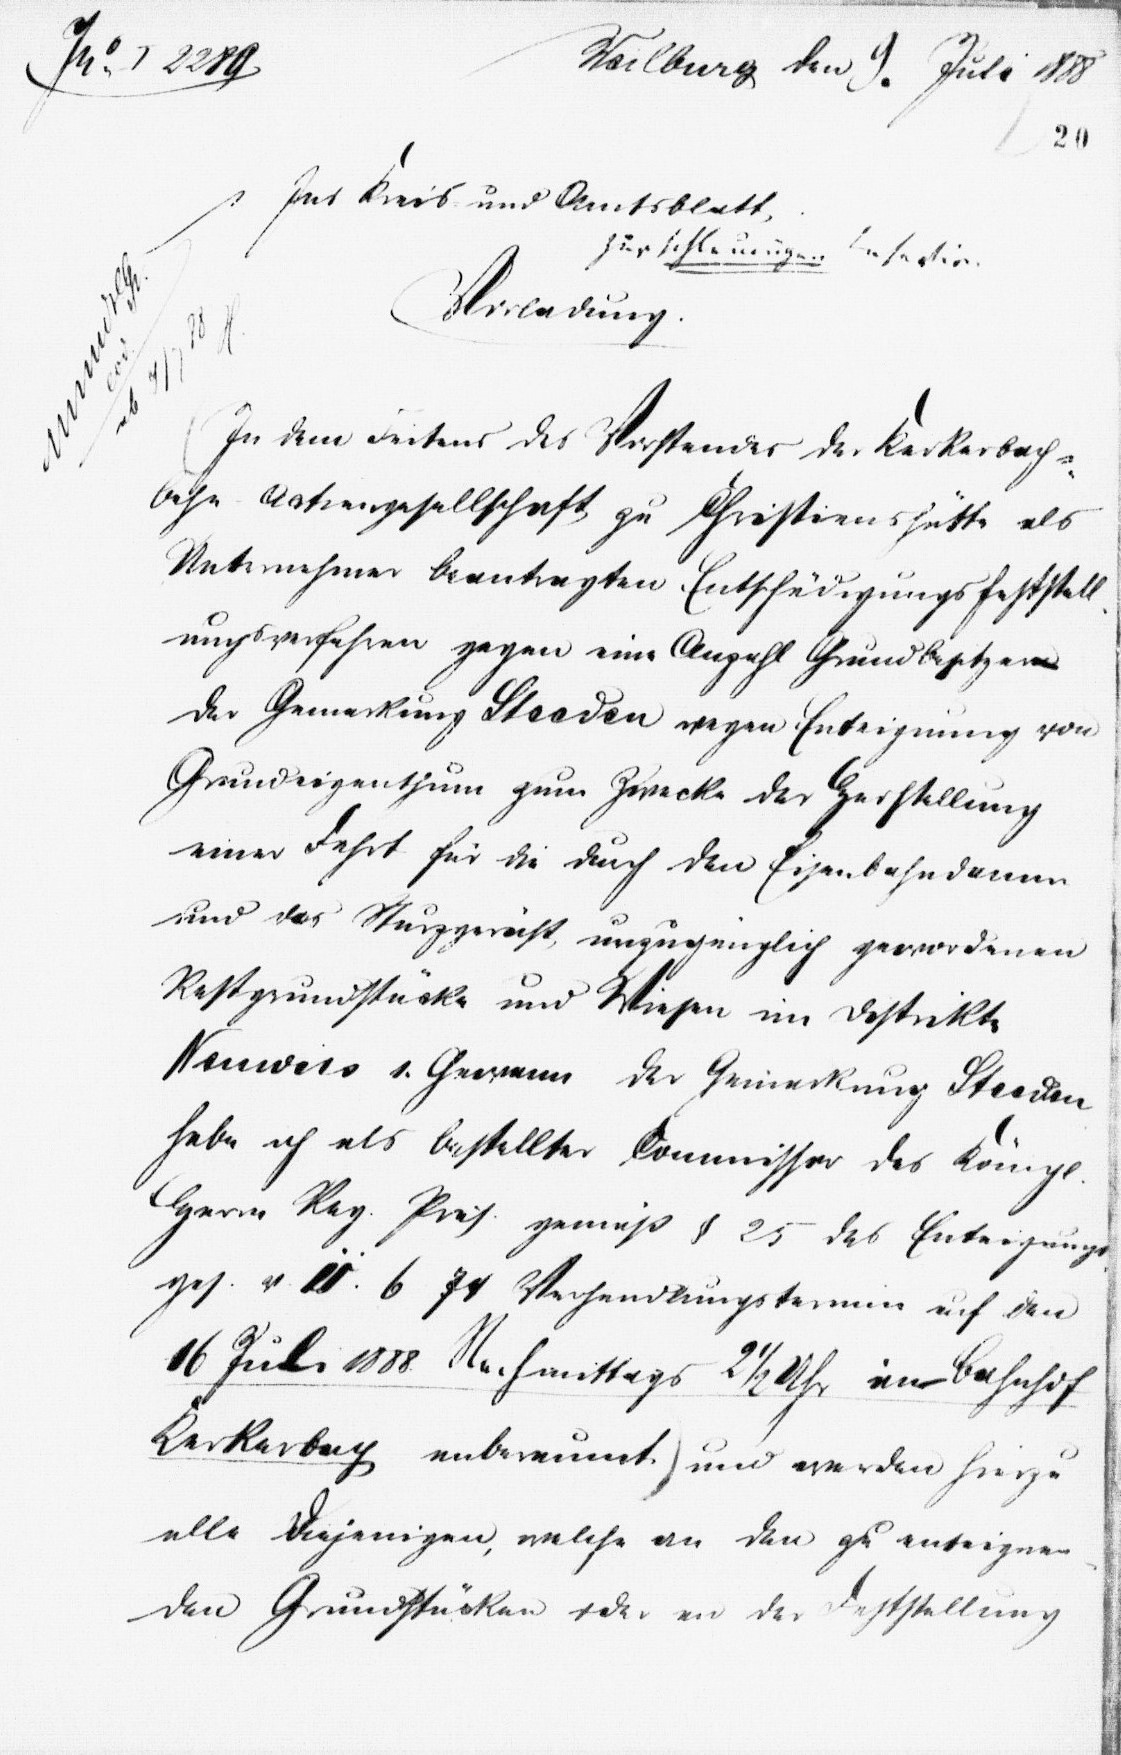 No I 2289
Weilburg den 9. Juli 1888
20
1 Ins Kreis und Amtsblatt,
zur schleunigen Insertion.
Vorladung.
mundirt
ab 9/7 88
In dem Seitens des Vorstandes der Kerkerbach-
bahn Actiengesellschaft zu Christianshütte als
Unternehmer beantragten Entschädigungsfeststell-
ungsverfahren gegen eine Anzahl Grundbesitzer
der Gemarkung Steeden wegen Enteignung von
Grundeigenthum zum Zwecke der Herstellung
einer Fahrt für die durch den Eisenbahndamm
und das Sturzgerüst, unzugänglich gewordenen
Restgrundstücke und Wiesen im Distrikte
Nauwies 1. Gewann der Gemarkung Steeden
habe ich als bestellter Commissar des Königl.
Herrn Reg. Präs. gemäß § 25 des Enteignungs-
ges. v. 11. 6 74 Verhandlungstermin auf den
16 Juli 1888 Nachmittags 2 1/2 Uhr im Bahnhof
Kerkerbach anberaumt) und werden hierzu
alle Diejenigen, welche an den zu enteignen-
den Grundstücken oder an der Feststellung